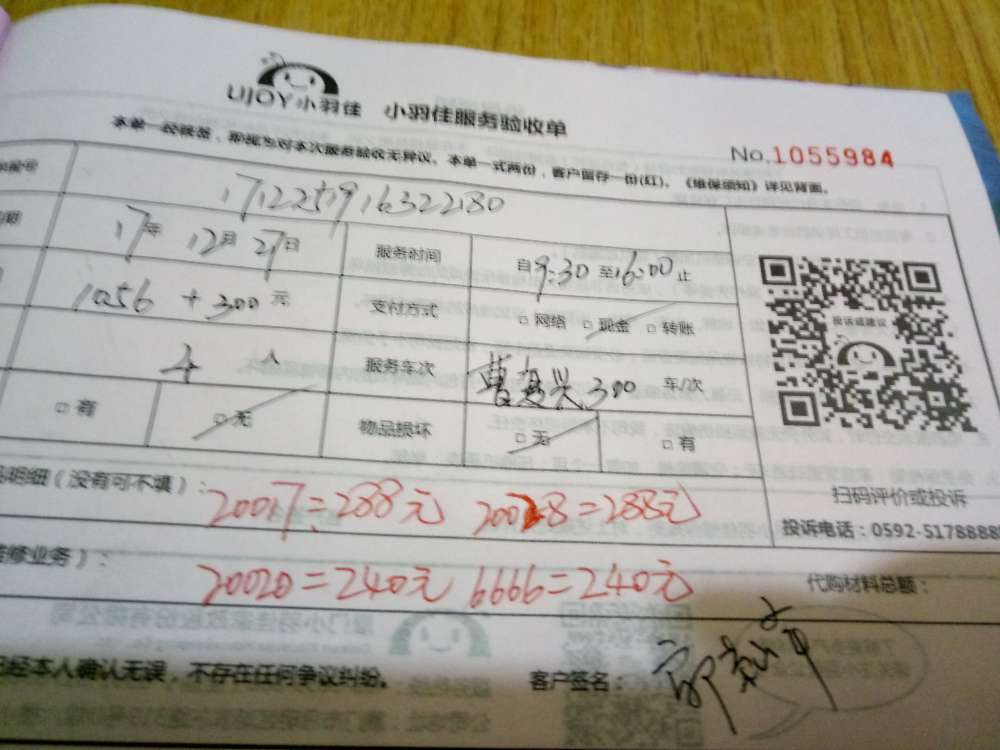 UJOY小羽佳 小羽佳服务验收单
本单一经换签，即视为对本次服务验收无异议。本单一式两份，客户留存一份(红)。《维保须知》详见背面。
No.1055984
171225916322280
17年 12月 27日 服务时间 自9:30至16:00止
1056 + 300 元 支付方式 □网络 □现金 □转账
4 人 服务车次 曹复兴300 车/次
□有 □无 物品损坏 □无 □有
投诉或建议
扫码评价或投诉
明细（没有可不填）： 20017=288元 20028=288元
投诉电话：0592-5178888
修业务）： 20020=240元 6666=240元 代购材料总额：
已经本人确认无误，不存在任何争议纠纷。 客户签名：